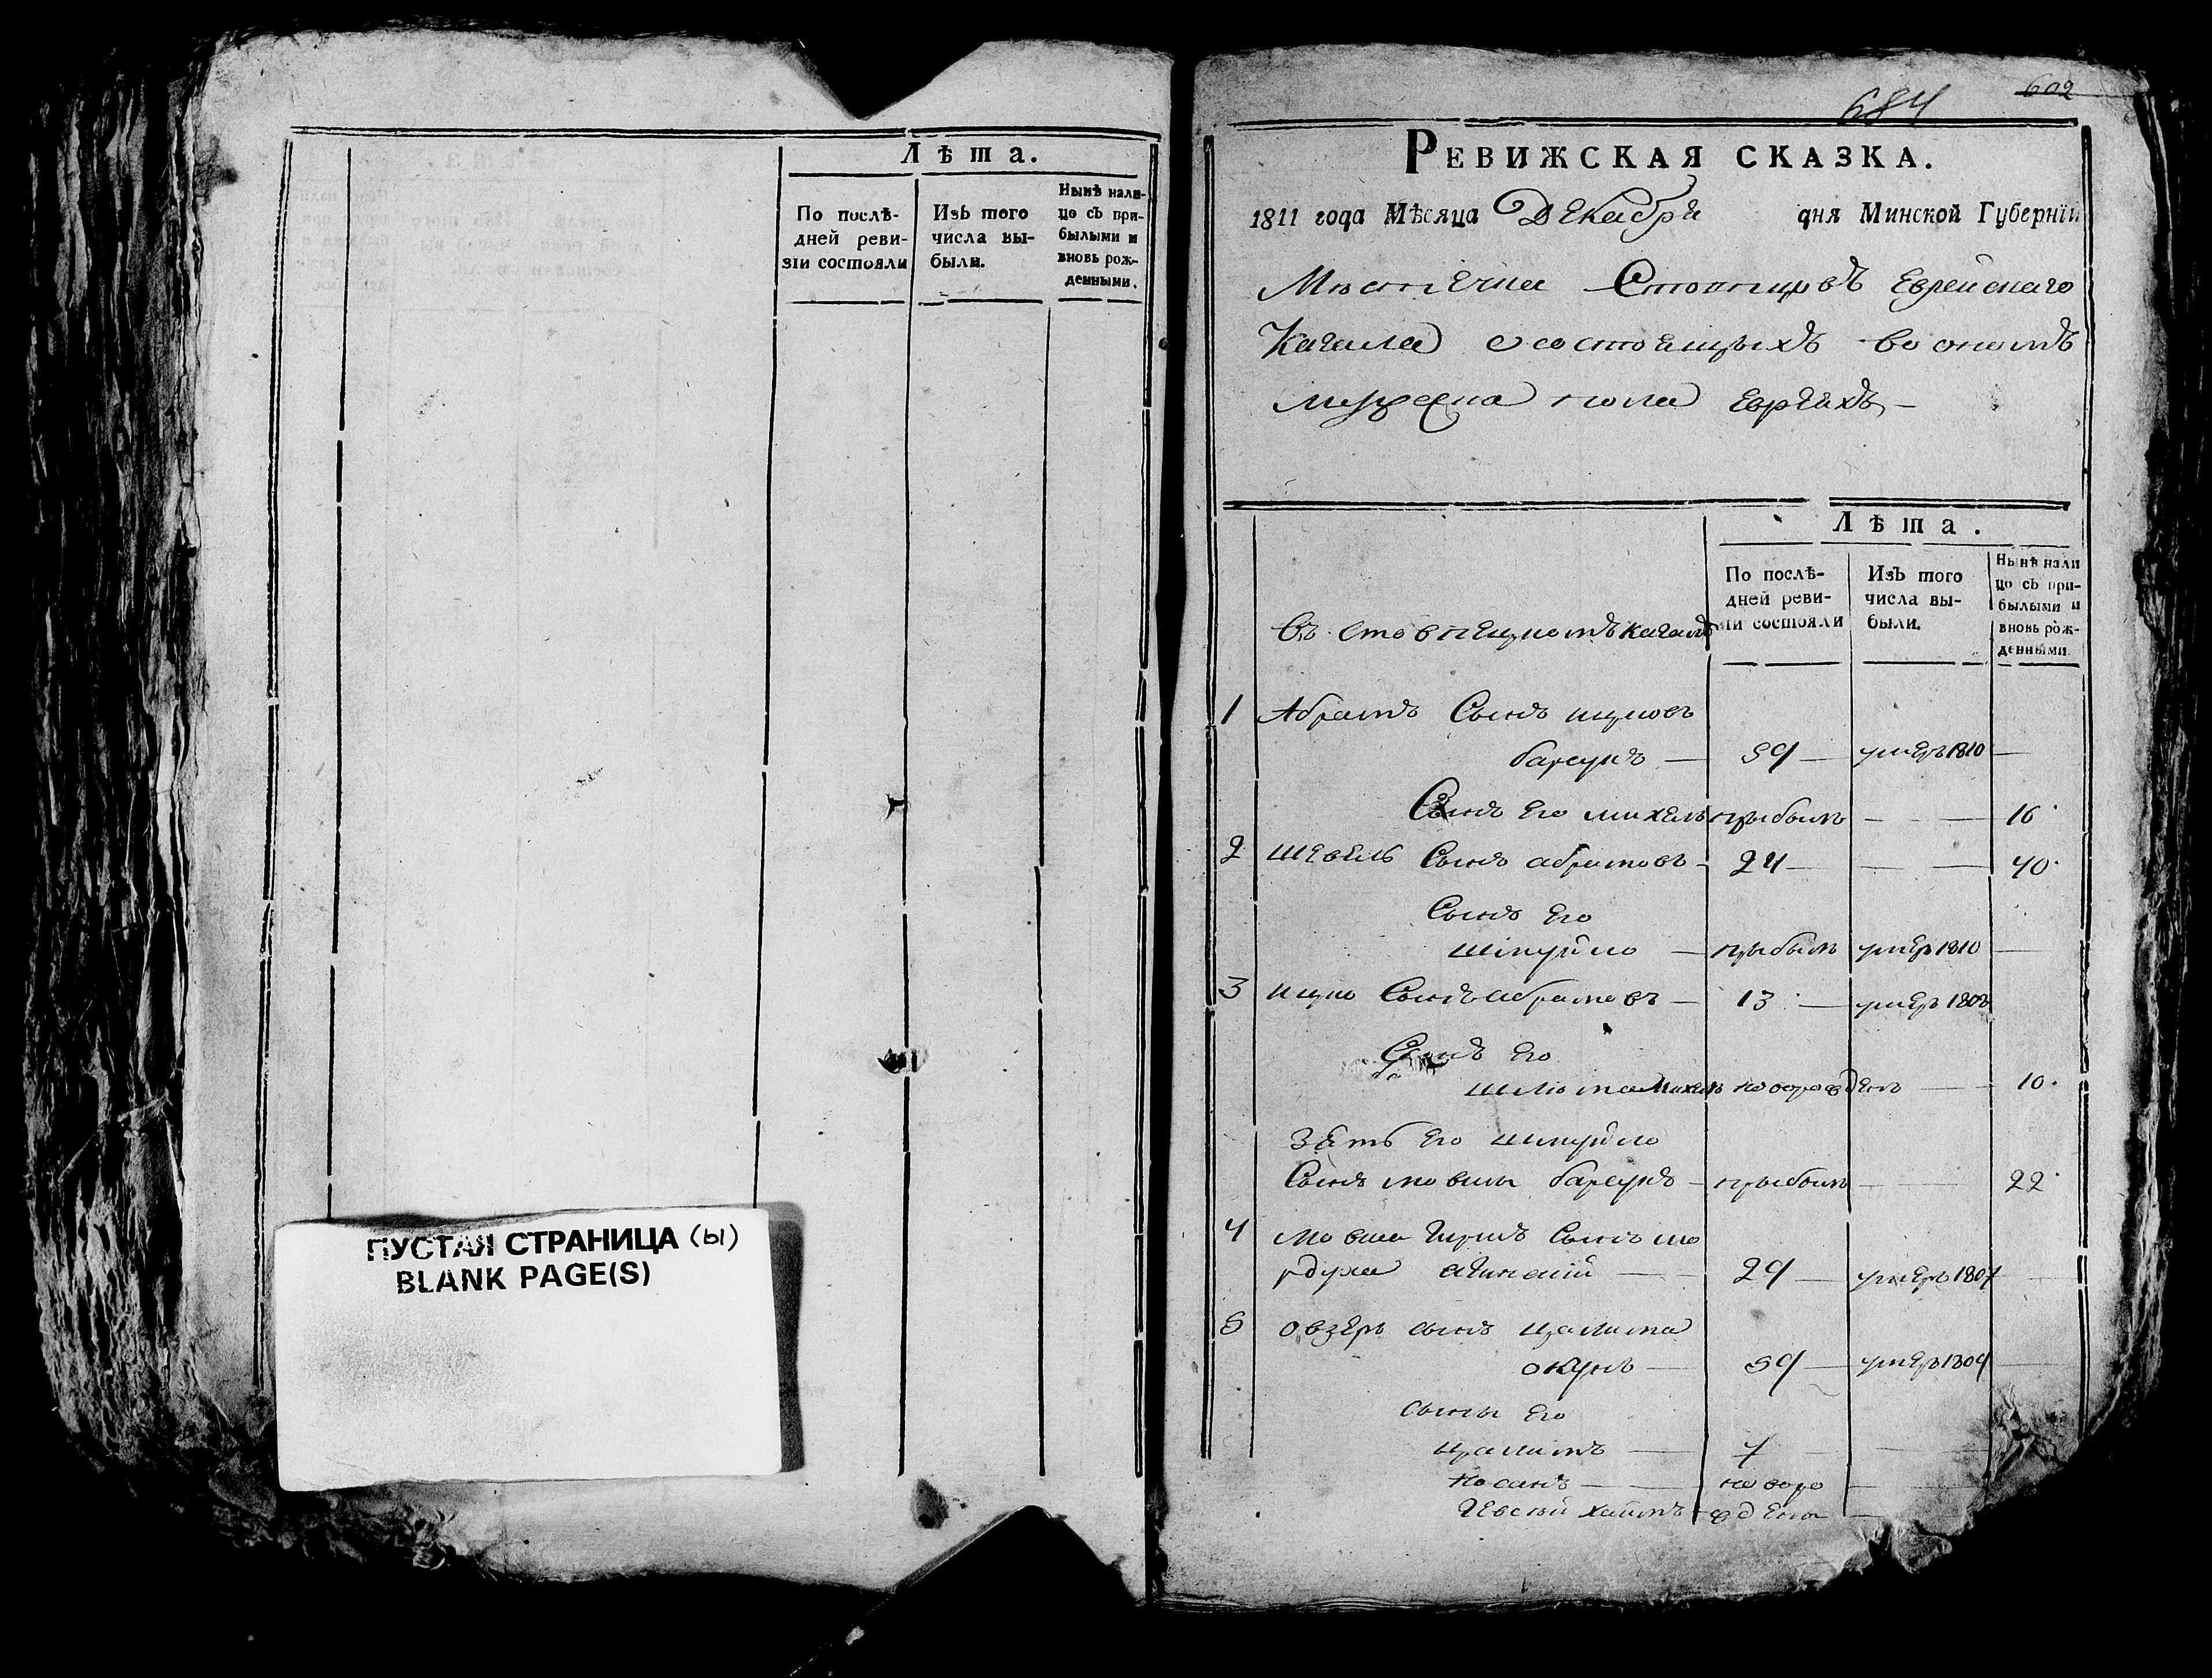 Лѣта.
По послѣ-
дней реви-
зіи состояли
Изъ того
числа вы-
были.
Нынѣ нали-
цо съ при-
былыми и
вновь рож-
денными.
ПУСТАЯ СТРАНИЦА (ы)
BLANK PAGE(S)
602
684
РЕВИЖСКАЯ СКАЗКА.
1811 года Мѣсяца Декабря дня Минской Губерніи
Местечка Столпцовъ Еврейскаго
Кагала о состоящыхъ во ономъ
мужеска пола Евреяхъ
Лѣта.
По послѣ-
дней реви-
зіи состояли
Изъ того
числа вы-
были.
Нынѣ нали
цо съ при-
былыми и
вновь рож-
денными.
Въ Стовпецкомъ кагалѣ
1 Абрамъ Сынъ ицковъ
барсукъ — 59 — умеръ 1810 —
Сынъ Его михель прыбылъ — — 16
2 шевель Сынъ абрамовъ — 24 — — — 40
Сынъ Его
шмуйло — прыбылъ умеръ 1810 —
3 ицко Сынъ абрамовъ — 13 — умеръ 180
Сынъ Его
Михель новорожденъ — 10
Зять Его шмуйло
Сынъ мовши барсукъ — прыбылъ — — 22
4 Мовша Гиршъ Сынъ мо
рдуха — 29 — умеръ 1807
5 овзеръ сынъ
окунь — 59 — умеръ 1809
сыны Его
— 7 —
Носанъ — новоро —
хаимъ — ждены —